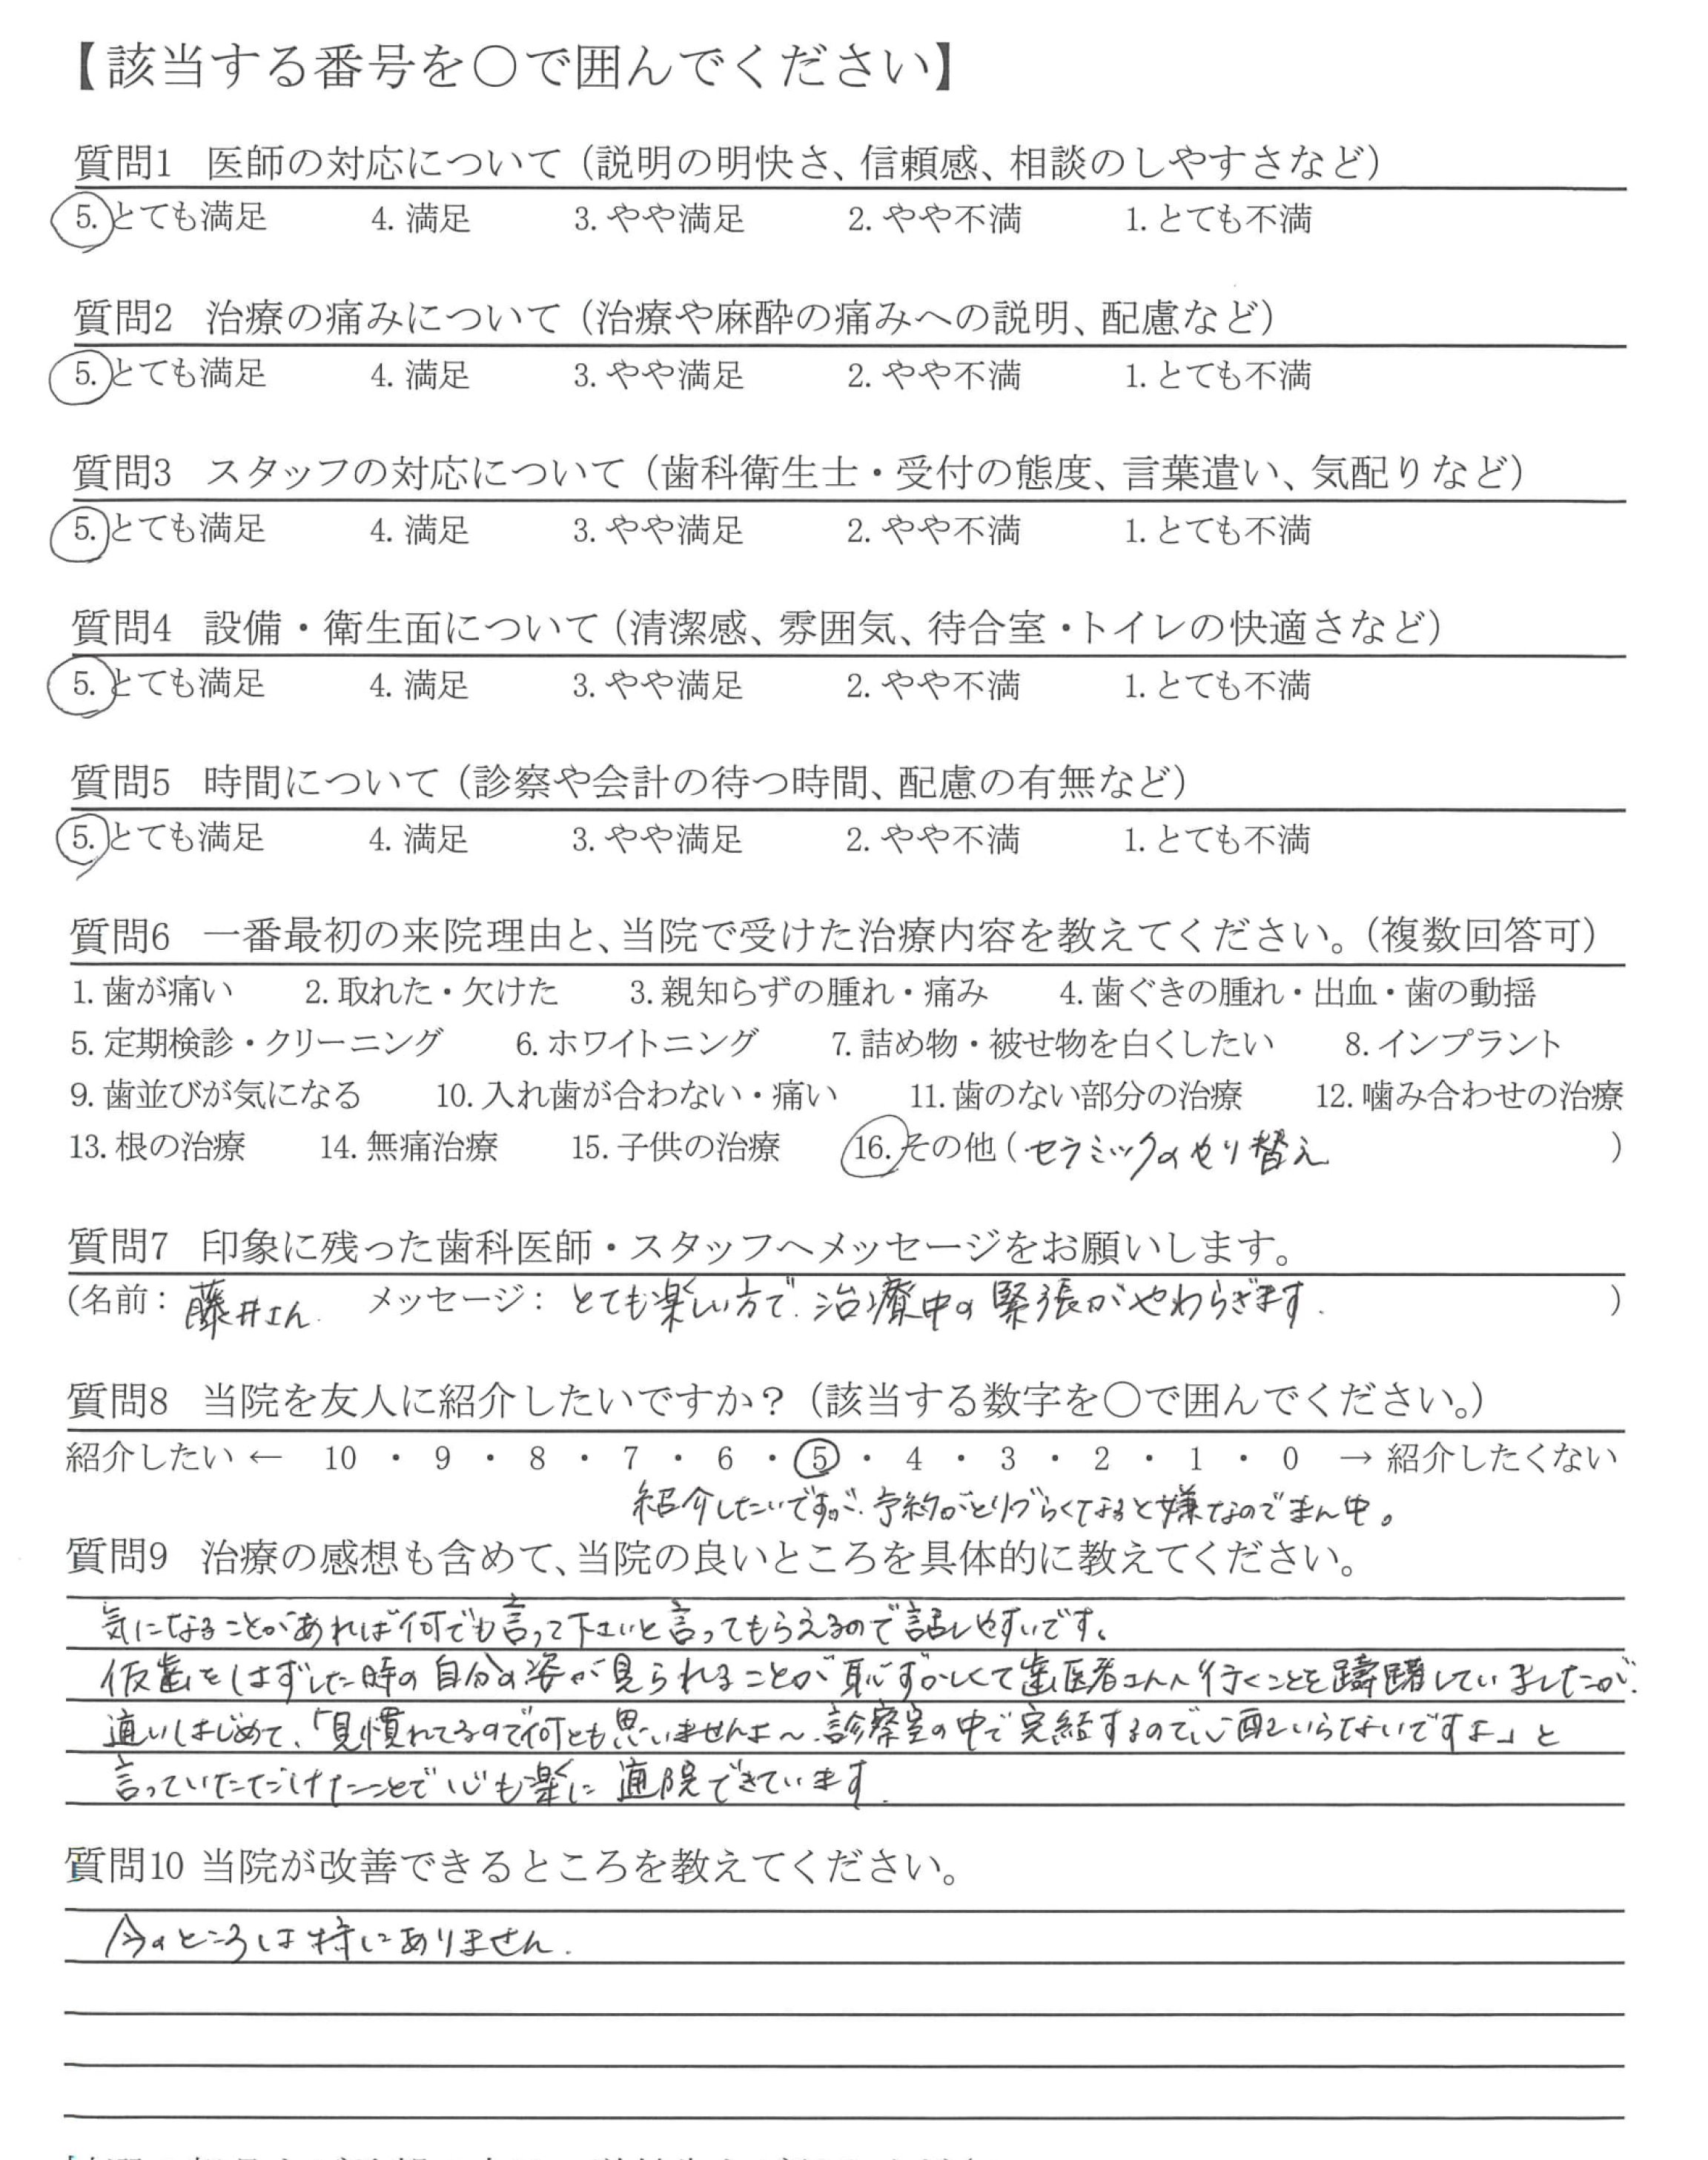 【該当する番号を〇で囲んでください】
質問1 医師の対応について（説明の明快さ、信頼感、相談のしやすさなど）
5. とても満足 4. 満足 3. やや満足 2. やや不満 1. とても不満
質問2 治療の痛みについて（治療や麻酔の痛みへの説明、配慮など）
5. とても満足 4. 満足 3. やや満足 2. やや不満 1. とても不満
質問3 スタッフの対応について（歯科衛生士・受付の態度、言葉遣い、気配りなど）
5. とても満足 4. 満足 3. やや満足 2. やや不満 1. とても不満
質問4 設備・衛生面について（清潔感、雰囲気、待合室・トイレの快適さなど）
5. とても満足 4. 満足 3. やや満足 2. やや不満 1. とても不満
質問5 時間について（診察や会計の待つ時間、配慮の有無など）
5. とても満足 4. 満足 3. やや満足 2. やや不満 1. とても不満
質問6 一番最初の来院理由と、当院で受けた治療内容を教えてください。（複数回答可）
1. 歯が痛い 2. 取れた・欠けた 3. 親知らずの腫れ・痛み 4. 歯ぐきの腫れ・出血・歯の動揺
5. 定期検診・クリーニング 6. ホワイトニング 7. 詰め物・被せ物を白くしたい 8. インプラント
9. 歯並びが気になる 10. 入れ歯が合わない・痛い 11. 歯のない部分の治療 12. 噛み合わせの治療
13. 根の治療 14. 無痛治療 15. 子供の治療 16. その他（セラミックのやり替え）
質問7 印象に残った歯科医師・スタッフへメッセージをお願いします。
（名前：藤井さん. メッセージ：とても楽しい方で、治療中の緊張がやわらぎます.）
質問8 当院を友人に紹介したいですか？（該当する数字を〇で囲んでください。）
紹介したい ← 10 ・ 9 ・ 8 ・ 7 ・ 6 ・ 5 ・ 4 ・ 3 ・ 2 ・ 1 ・ 0 → 紹介したくない
紹介したいですが、予約がとりづらくなると嫌なのでまん中。
質問9 治療の感想も含めて、当院の良いところを具体的に教えてください。
気になることがあれば何でも言って下さいと言ってもらえるので話しやすいです。
仮歯をはずした時の自分の姿が見られることが恥ずかしくて歯医者さんへ行くことを躊躇していましたが、
通いはじめて、「見慣れてるので何とも思いませんよ〜.診察室の中で完結するので心配いらないですよ」と
言っていただけたことで心も楽に通院できています.
質問10 当院が改善できるところを教えてください。
今のところは特にありません.